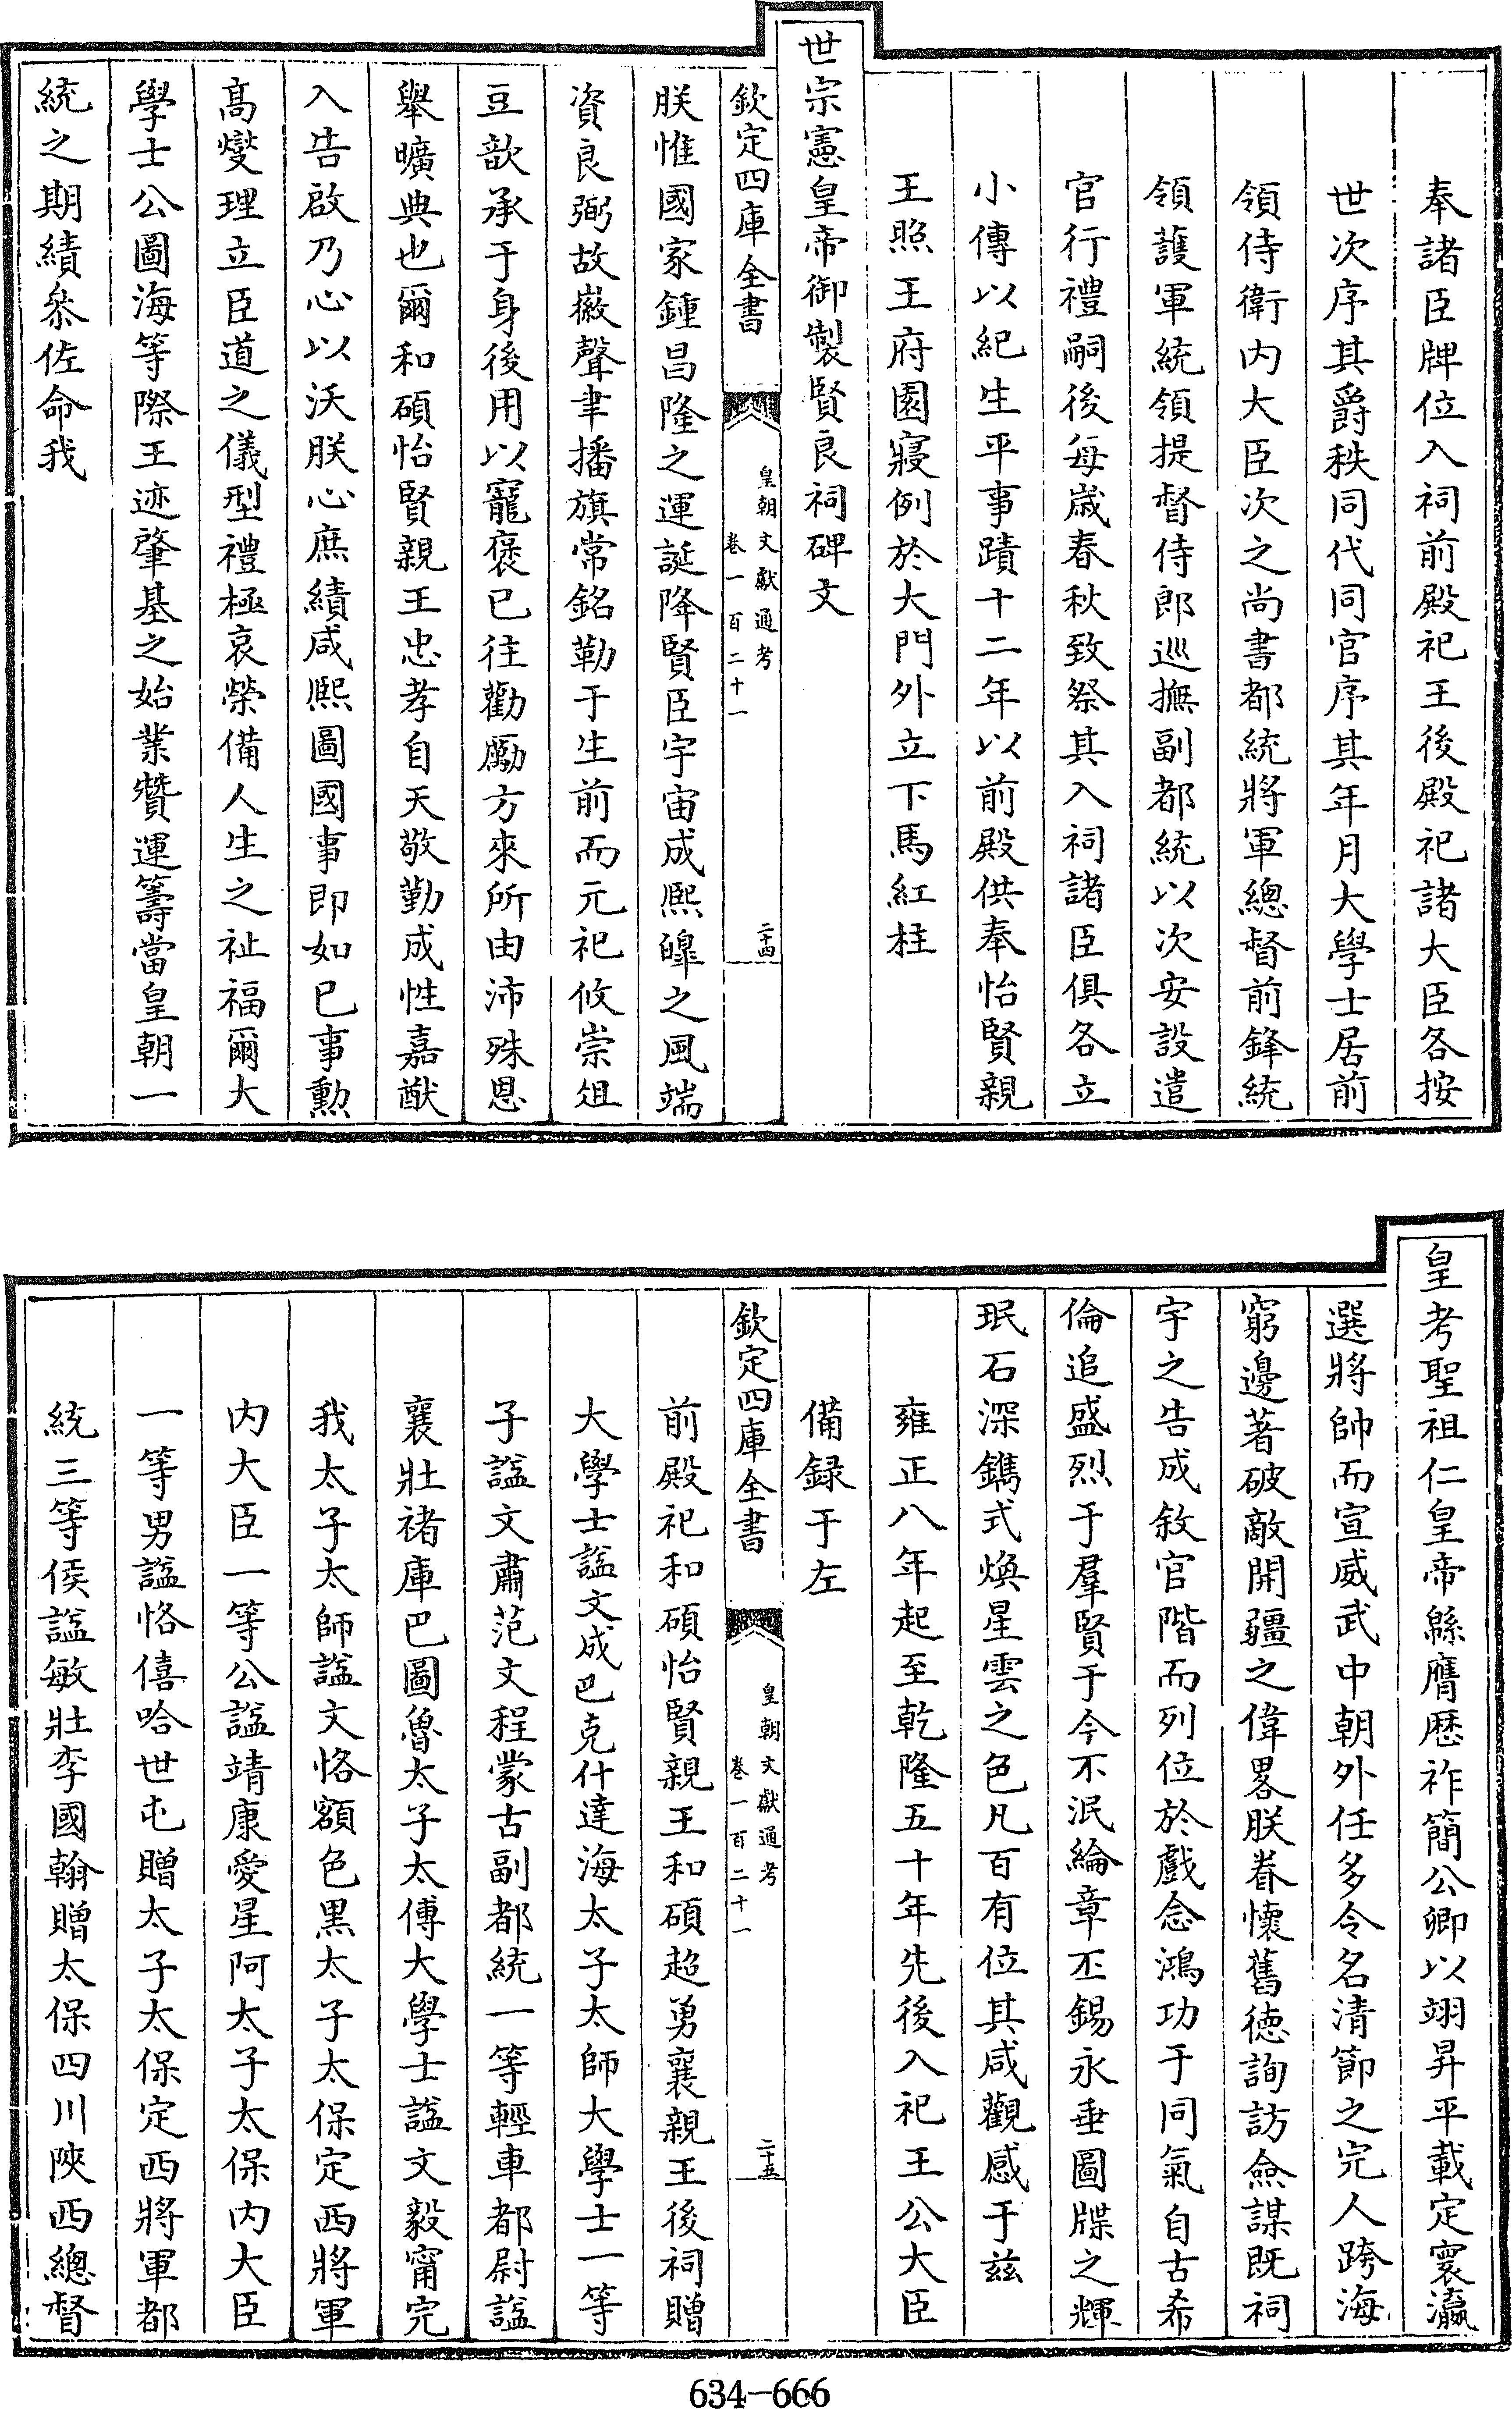 奉諸臣牌位入祠前殿祀王後殿祀諸大臣各按
世次序其爵秩同代同官序其年月大學士居前
領侍衛内大臣次之尚書都統將軍總督前鋒統
領護軍統領提督侍郎巡撫副都統以次安設遣
官行禮嗣後每歳春秋致祭其入祠諸臣俱各立
小傳以紀生平事蹟十二年以前殿供奉怡賢親
王照王府園寢例於大門外立下馬紅柱
世宗憲皇帝御製賢良祠碑文
欽定四庫全書
皇朝文獻通考
卷一百二十一
二十四
朕惟國家鍾昌隆之運誕降賢臣宇宙成熙皥之風端
資良弼故徽聲聿播旗常銘勒于生前而元祀攸崇俎
豆歆承于身後用以寵褒已往勸勵方來所由沛殊恩
舉曠典也爾和碩怡賢親王忠孝自天敬勤成性嘉猷
入告啟乃心以沃朕心庶績咸熙圖國事即如已事勲
高燮理立臣道之儀型禮極哀榮備人生之祉福爾大
學士公圖海等際王迹肇基之始業贊運籌當皇朝一
統之期績叅佐命我
皇考聖祖仁皇帝緜膺厯祚簡公卿以翊昇平載定寰瀛
選將帥而宣威武中朝外任多令名清節之完人跨海
窮邊著破敵開疆之偉畧朕眷懷舊徳詢訪僉謀既祠
宇之告成敘官階而列位於戲念鴻功于同氣自古希
倫追盛烈于羣賢于今不泯綸章丕錫永垂圖牒之輝
珉石深鐫式煥星雲之色凡百有位其咸觀感于兹
雍正八年起至乾隆五十年先後入祀王公大臣
備録于左
欽定四庫全書
皇朝文獻通考
卷一百二十一
二十五
前殿祀和碩怡賢親王和碩超勇襄親王後祠贈
大學士諡文成巴克什達海太子太師大學士一等
子諡文肅范文程蒙古副都統一等輕車都尉諡
襄壯褚庫巴圖魯太子太傅大學士諡文毅甯完
我太子太師諡文恪額色黒太子太保定西將軍
内大臣一等公諡靖康愛星阿太子太保内大臣
一等男諡恪僖哈世屯贈太子太保定西將軍都
統三等侯諡敏壯李國翰贈太保四川陜西總督
634-666